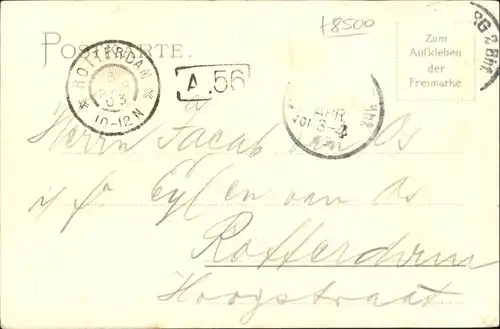 +8500
POSTKARTE.
Zum
Aufkleben
der
Freimarke
ROTTERDAM
3
03
10-12N
A.56
APR
3-4
Bhf
Herrn Jacob van Os
Eylen van Os
Rotterdam
Hoogstraat